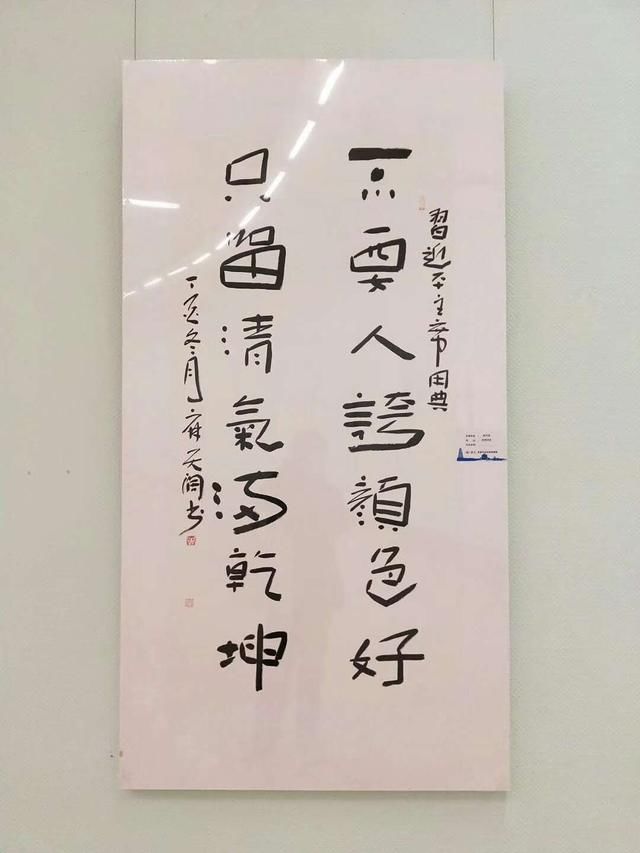 習近平主席用典
不要人誇顔色好
只留清氣滿乾坤
丁酉冬月 天 书